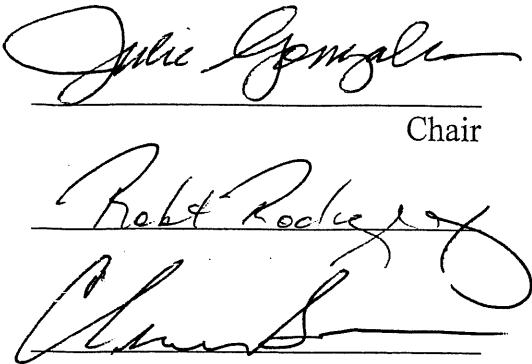 Julie Gonzales
Chair
Robt Rodriguez